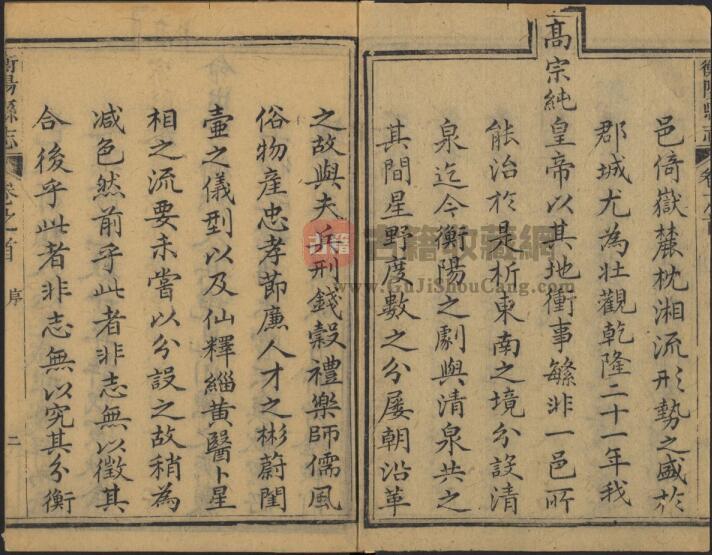 衡陽縣志
邑倚嶽麓枕湘流形勢之盛於
郡城尤為壯觀乾隆二十一年我
高宗純皇帝以其地衝事繁非一邑所
能治於是析東南之境分設清
泉迄今衡陽之劇與清泉共之
其間星野度數之分屢朝沿革
之故與夫兵刑錢穀禮樂師儒風
俗物產忠孝節廉人才之彬蔚閨
壼之儀型以及仙釋緇黃醫卜星
相之流要未嘗以分設之故稍為
減色然前乎此者非志無以徵其
合後乎此者非志無以究其分衡
衡陽縣志 卷之首 序 二
古籍
古籍收藏網
www.GuJiShouCang.com